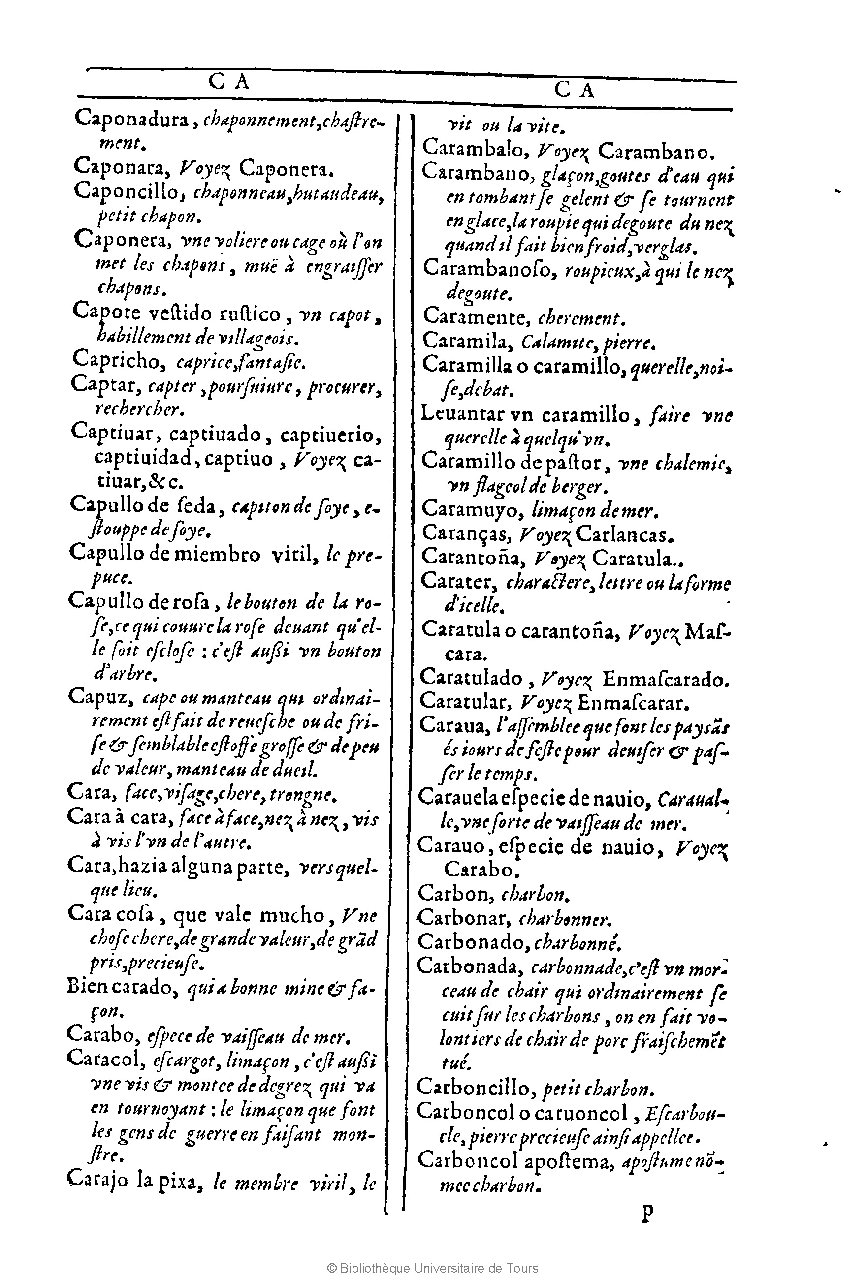 C A
Caponadura, chaponnement, chaſtre-
ment.
Caponara, Voyez Caponera.
Caponcillo, chaponneau, hutaudeau,
petit chapon.
Caponera, vne voliere ou cage où l'on
met les chapons, muë à engraiſſer
chapons.
Capote veſtido ruſtico, vn capot,
habillement de villageois.
Capricho, caprice, fantaſie.
Captar, capter, pourſuiure, procurer,
rechercher.
Captiuar, captiuado, captiuerio,
captiuidad, captiuo, Voyez ca-
tiuar, &c.
Capullo de ſeda, capiton de ſoye, e-
ſtouppe de ſoye.
Capullo de miembro viril, le pre-
puce.
Capullo de roſa, le bouton de la ro-
ſe, ce qui couure la roſe deuant qu'el-
le ſoit eſcloſe : c'eſt auſſi vn bouton
d'arbre.
Capuz, cape ou manteau qui ordinai-
rement eſt fait de reueſche ou de fri-
ſe & ſemblable eſtoffe groſſe & de peu
de valeur, manteau de dueil.
Cara, face, viſage, chere, trongne.
Cara à cara, face à face, nez à nez, vis
à vis l'vn de l'autre.
Cara, hazia alguna parte, vers quel-
que lieu.
Cara coſa, que vale mucho, Vne
choſe chere, de grande valeur, de grãd
pris, precieuſe.
Bien carado, qui a bonne mine & fa-
çon.
Carabo, eſpece de vaiſſeau de mer.
Caracol, eſcargot, limaçon, c'eſt auſſi
vne vis & montee de degrez qui va
en tournoyant : le limaçon que font
les gens de guerre en faiſant mon-
ſtre.
Carajo la pixa, le membre viril, le
C A
vit ou la vite.
Carambalo, Voyez Carambano.
Carambano, glaçon, goutes d'eau qui
en tombant ſe gelent & ſe tournent
en glace, la roupie qui degoute du nez
quand il fait bien froid, verglas.
Carambanoſo, roupieux, à qui le nez
degoute.
Caramente, cherement.
Caramila, Calamite, pierre.
Caramilla o caramillo, querelle, noi-
ſe, debat.
Leuantar vn caramillo, faire vne
querelle à quelqu'vn.
Caramillo de paſtor, vne chalemie,
vn flageol de berger.
Caramuyo, limaçon de mer.
Caranças, Voyez Carlancas.
Carantoña, Voyez Caratula..
Carater, charactere, lettre ou la forme
d'icelle.
Caratula o carantoña, Voyez Maſ-
cara.
Caratulado, Voyez Enmaſcarado.
Caratular, Voyez Enmaſcarar.
Caraua, l'aſſemblee que font les payſãs
és iours de feſte pour deuiſer & paſ-
ſer le temps.
Carauela eſpecie de nauio, Carauel-
le, vne ſorte de vaiſſeau de mer.
Carauo, eſpecie de nauio, Voyez
Carabo.
Carbon, charbon.
Carbonar, charbonner.
Carbonado, charbonné.
Carbonada, carbonnade, c'eſt vn mor-
ceau de chair qui ordinairement ſe
cuit ſur les charbons, on en fait vo-
lontiers de chair de porc fraiſchemẽt
tué.
Carboncillo, petit charbon.
Carboncol o caruoncol, Eſcarbou-
cle, pierre precieuſe ainſi appellee.
Carboncol apoſtema, apoſtume nõ-
mee charbon.
P
© Bibliothèque Universitaire de Tours